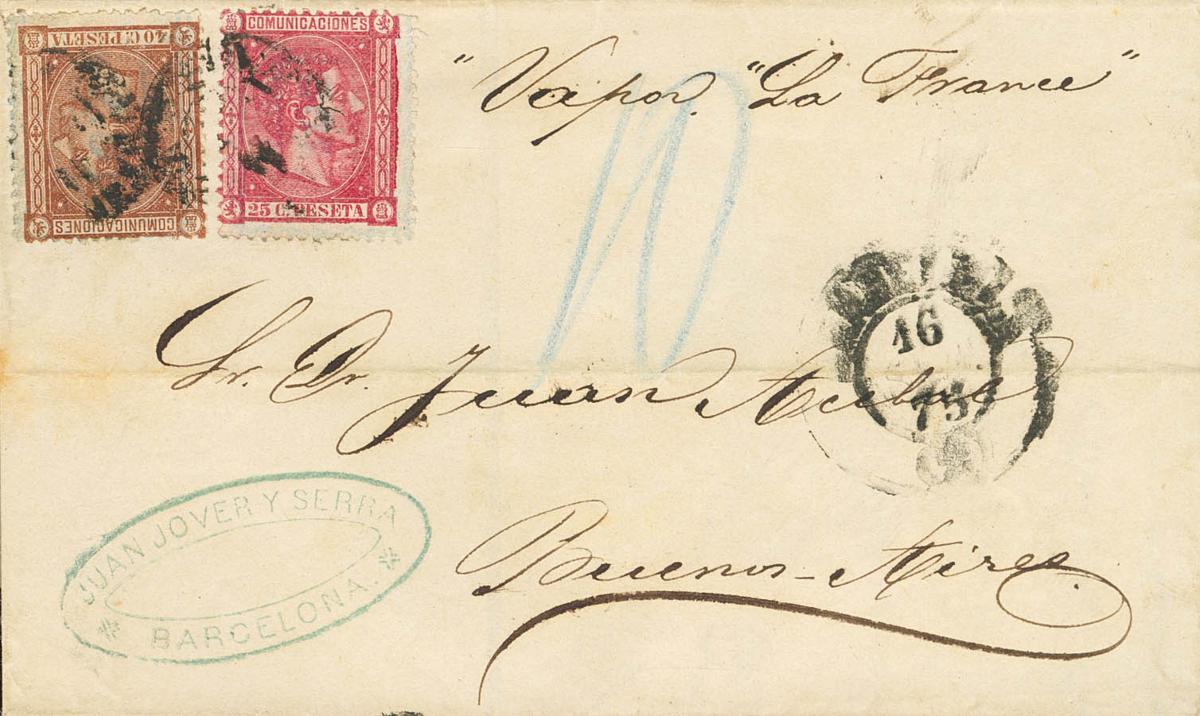 40 C. PESETA
COMUNICACIONES
COMUNICACIONES
25 C. PESETA
"Vapor "La France"
10
Sr. Dr. Juan
16
75
Buenos-Aires
JUAN JOVER Y SERRA
BARCELONA.